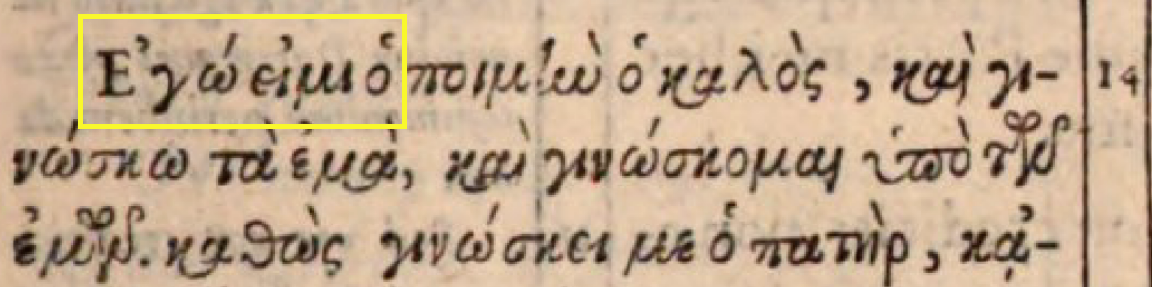 Ἐγώ εἰμι ὁ ποιμὴν ὁ καλὸς, καὶ γι- 14
νώσκω τὰ ἐμὰ, καὶ γινώσκομαι ὑπὸ τῶν
ἐμῶν. καθὼς γινώσκει με ὁ πατὴρ, κἀ-